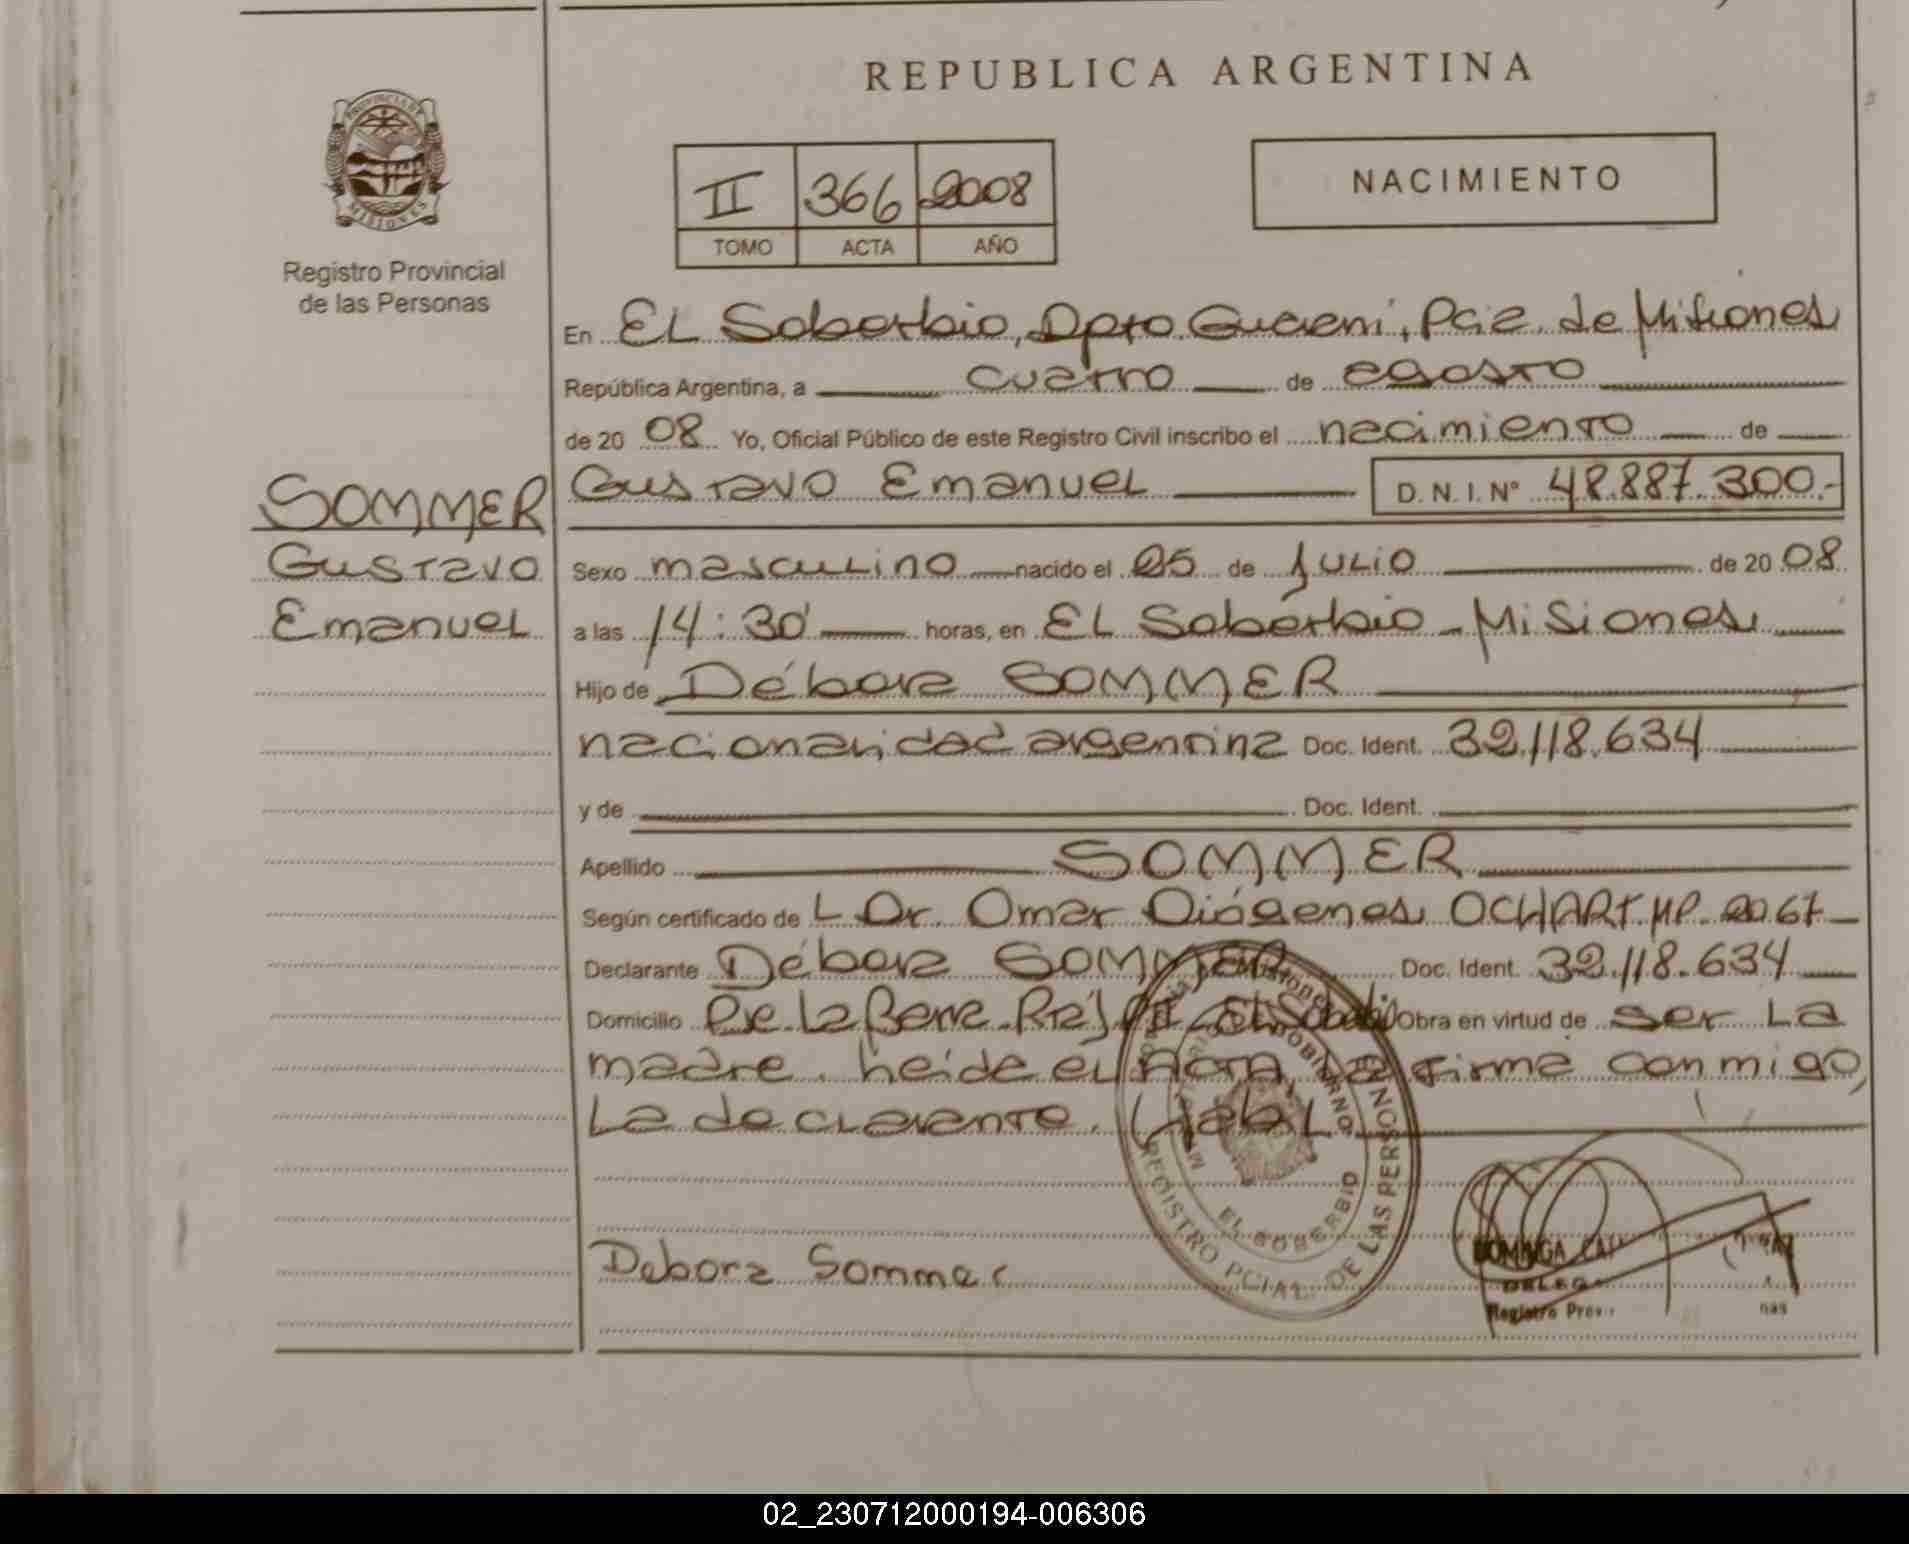 REPUBLICA ARGENTINA
PROVINCIA DE
MISIONES
Registro Provincial
de las Personas
II 366 2008
TOMO ACTA AÑO
NACIMIENTO
En EL Soberbio, Dpto. Guarani, Pcia. de Misiones
República Argentina, a cuatro de agosto
de 20 08 Yo, Oficial Público de este Registro Civil inscribo el nacimiento de
Gustavo Emanuel D. N. I. Nº 48.887.300.-
SOMMER
Gustavo
Emanuel
Sexo masculino nacido el 05 de Julio de 20 08
a las 14:30' horas, en EL Soberbio - Misiones
Hijo de Débora SOMMER
nacionalidad argentina Doc. Ident. 32.118.634
y de Doc. Ident.
Apellido SOMMER
Según certificado de L Dr. Omar Diógenes OCHART MP. 2067
Declarante Débora SOMMER Doc. Ident. 32.118.634
Domicilio El Soberbio Obra en virtud de ser La
madre. Leída el Acta, La firma conmigo,
La declarante.
Debora Sommer
REGISTRO PCIAL. DE LAS PERSONAS
EL SOBERBIO
DOMINGA
DELEG
Registro Prov nas
02_230712000194-006306